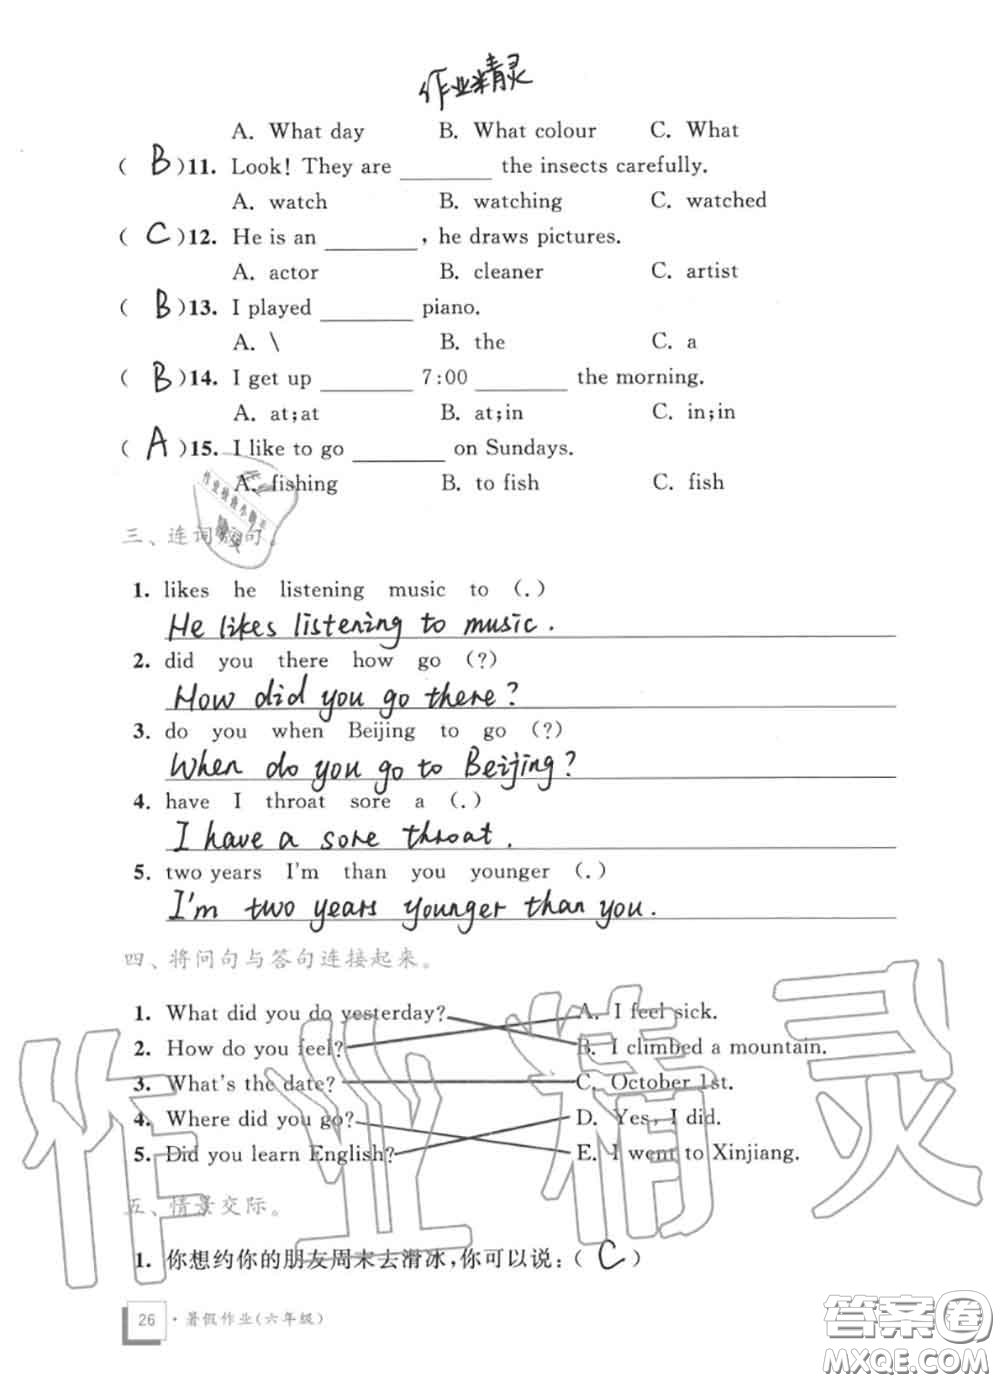 作业精灵
A. What day B. What colour C. What
( B )11. Look! They are ________ the insects carefully.
A. watch B. watching C. watched
( C )12. He is an ________ , he draws pictures.
A. actor B. cleaner C. artist
( B )13. I played ________ piano.
A. \ B. the C. a
( B )14. I get up ________ 7:00 ________ the morning.
A. at;at B. at;in C. in;in
( A )15. I like to go ________ on Sundays.
A. fishing B. to fish C. fish
三、连词 句。
1. likes he listening music to (.)
He likes listening to music.
2. did you there how go (?)
How did you go there?
3. do you when Beijing to go (?)
When do you go to Beijing?
4. have I throat sore a (.)
I have a sore throat.
5. two years I'm than you younger (.)
I'm two years younger than you.
四、将问句与答句连接起来。
1. What did you do yesterday? A. I feel sick.
2. How do you feel? B. I climbed a mountain.
3. What's the date? C. October 1st.
4. Where did you go? D. Yes, I did.
5. Did you learn English? E. I went to Xinjiang.
作业精灵
五、情景交际。
1. 你想约你的朋友周末去滑冰,你可以说:( C )
26 · 暑假作业(六年级)
答案圈
MXQE.COM